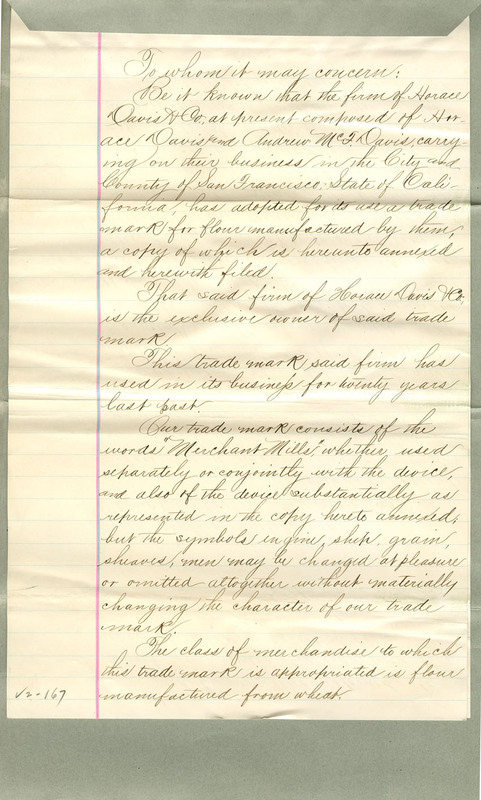 To whom it may concern:
Be it known that the firm of Horace
Davis & Co, at present composed of Hor-
ace Davis and Andrew McF. Davis, carry-
ing on their business in the City and
County of San Francisco, State of Cali-
fornia, has adopted for its use a trade
mark for flour manufactured by them,
a copy of which is hereunto annexed
and herewith filed.
That said firm of Horace Davis & Co,
is the exclusive owner of said trade
mark
This trade mark, said firm has
used in its business for twenty years
last past.
Our trade mark consists of the
words "Merchant Mills," whether used
separately or conjointly with the device,
and also of the device substantially as
represented in the copy hereto annexed;
but the symbols engine, ship, grain,
sheaves, men may be changed at pleasure
or omitted altogether without materially
changing the character of our trade
mark.
The class of merchandise to which
this trade mark is appropriated is flour
manufactured from wheat.
V2-167